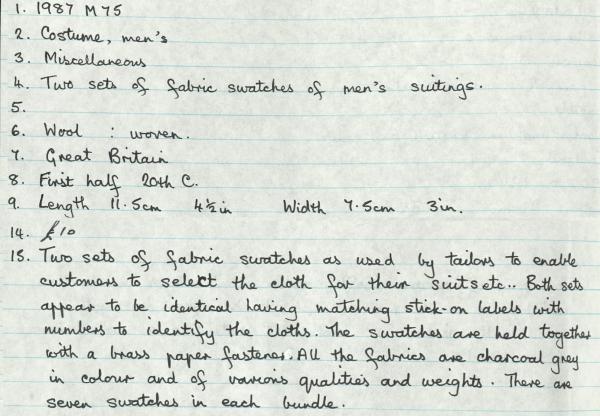 1. 1987 M75
2. Costume, men's
3. Miscellaneous
4. Two sets of fabric swatches of men's suitings.
5.
6. Wool : woven.
7. Great Britain
8. First half 20th C.
9. Length 11.5cm 4½in Width 7.5cm 3in.
14. £10
15. Two sets of fabric swatches as used by tailors to enable
customers to select the cloth for their suits etc.. Both sets
appear to be identical having matching stick-on labels with
numbers to identify the cloths. The swatches are held together
with a brass paper fastener. All the fabrics are charcoal grey
in colour and of various qualities and weights. There are
seven swatches in each bundle.